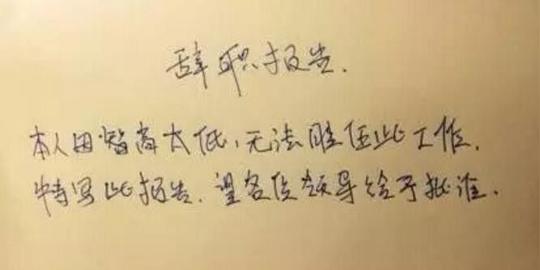 辞职报告.
本人因智商太低,无法胜任此工作.
特写此报告.望各位领导给予批准.